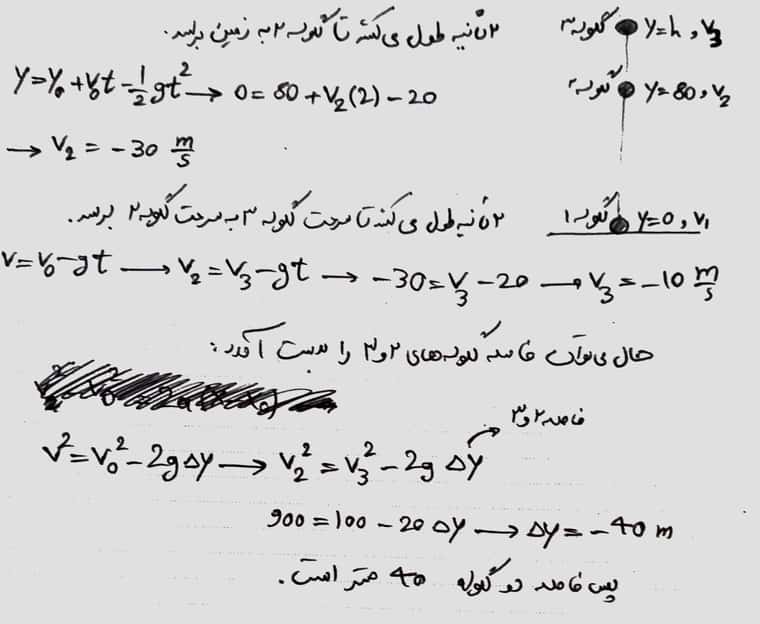 ۲ ثانیه طول می کشد تا گلوله ۲ به زمین برسد.
گلوله ۳ y=h , v₃
y=y₀+v₀t-½gt² → 0=80+v₂(2)-20
گلوله ۲ y=80 , v₂
→ v₂ = -30 m/s
گلوله ۱ y=0 , v₁
۲ ثانیه طول می کند تا سرعت گلوله ۳ به سرعت گلوله ۲ برسد.
v=v₀-gt → v₂=v₃-gt → -30=v₃-20 → v₃=-10 m/s
حال می توان فاصله گلوله های ۲ و ۳ را بدست آورد:
فاصله ۲ و ۳
v²=v₀²-2gΔy → v₂²=v₃²-2gΔy
900=100-20Δy → Δy=-40 m
پس فاصله دو گلوله ۴۰ متر است.